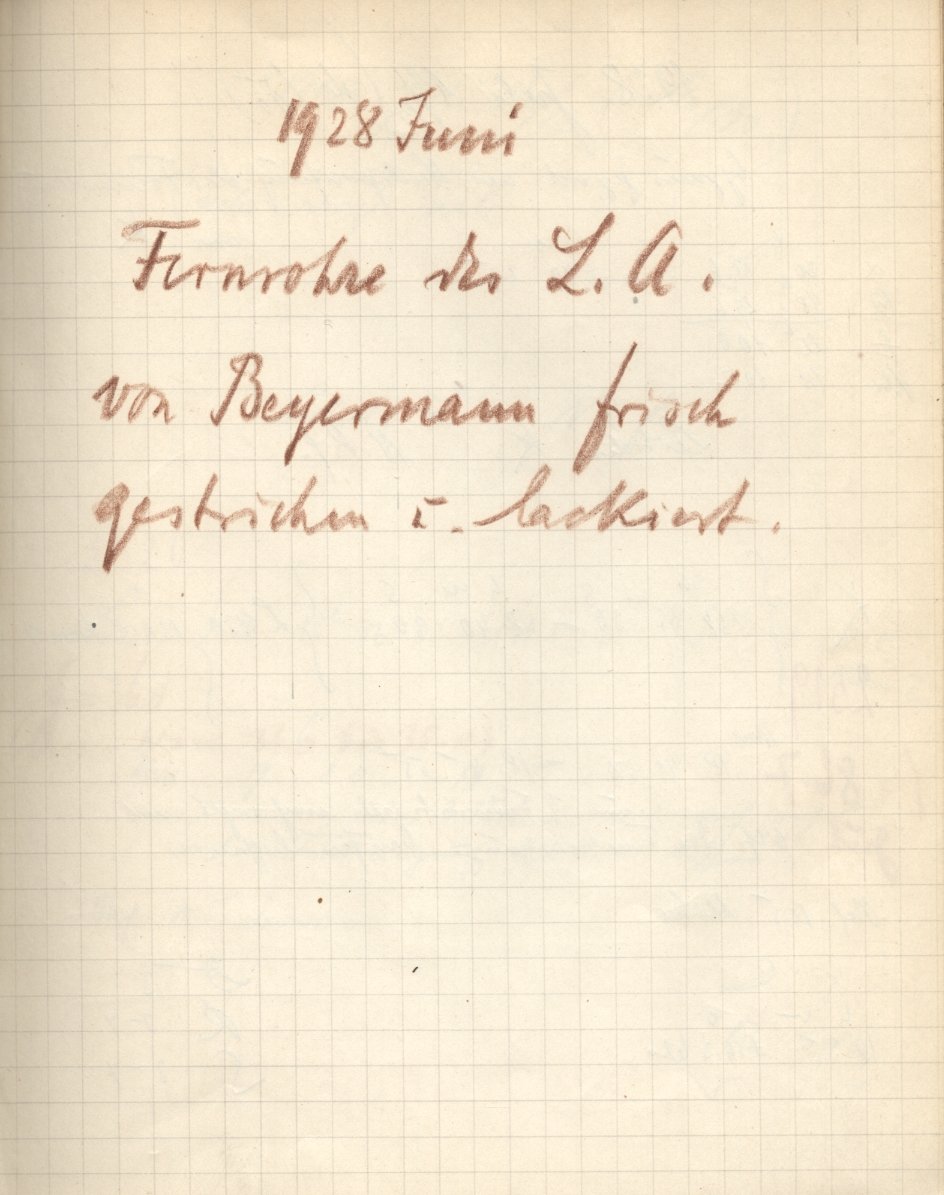 1928 Juni
Fernrohre des L. A.
von Beyermann frisch
gestrichen u. lackiert.